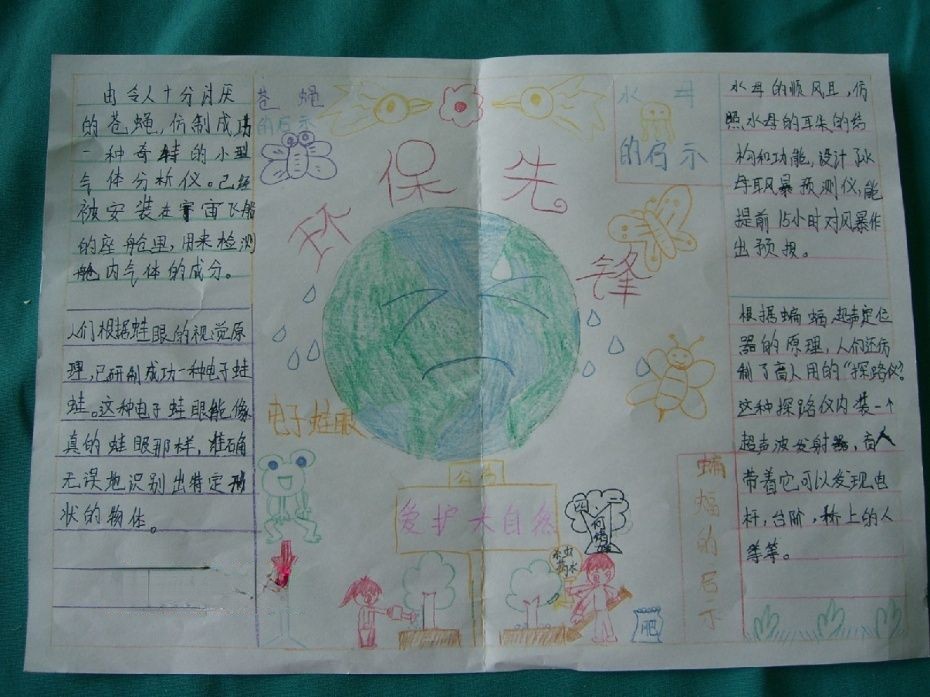 环保先锋
苍蝇
的启示
由令人十分讨厌
的苍蝇,仿制成功
一种奇特的小型
气体分析仪。已经
被安装在宇宙飞船
的座舱里,用来检测
舱内气体的成分。
人们根据蛙眼的视觉原
理,已研制成功一种电子蛙
蛙。这种电子蛙眼能像
真的蛙眼那样,准确
无误地识别出特定形
状的物体。
电子蛙眼
公告
爱护大自然
水母
的启示
水母的顺风耳,仿
照水母的耳朵的结
构和功能,设计了水
母耳风暴预测仪,能
提前15小时对风暴作
出预报。
根据蝙蝠超声定位
器的原理,人们还仿
制了盲人用的“探路仪”。
这种探路仪内装一个
超声波发射器,盲人
带着它可以发现电
杆,台阶,桥上的人
等等。
蝙蝠的启示
肥